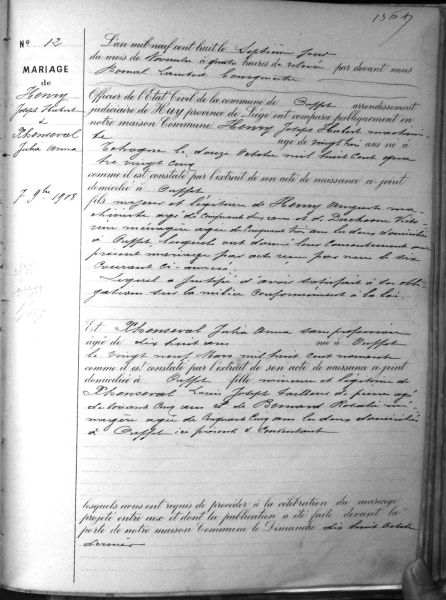 N° 12
MARIAGE
de
Henry
Joseph Hubert
&
Thonseval
Julia Anna
7 9bre 1908
L'an mil neuf cent huit le Septième jour
du mois de Novembre à quatre heures de relevée par devant nous
Bomal Lambert Bourgmestre
Officier de l'Etat Civil de la commune de Ouffet arrondissement
judiciaire de Huy province de Liége ont comparu publiquement en
notre maison Commune Henry Joseph Hubert machinis-
te âgé de vingt trois ans né à
le douze Octobre mil huit cent qua-
tre vingt cinq
comme il est constaté par l'extrait de son acte de naissance ci-joint
domicilié à Ouffet
fils majeur et légitime de Henry Auguste ma-
chiniste agé de cinquante ans et de
ménagère agée de cinquante ans les deux domiciliés
à Ouffet, lesquels ont donné leur consentement au
présent mariage par acte reçu par nous le six
courant ci-annexé
Lequel a justifié d'avoir satisfait à ses obli-
gations sur la milice conformément à la loi.
Et Thonseval Julia Anna sans profession
agée de dix huit ans née à Ouffet
le vingt neuf Mars mil huit cent nonante
comme il est constaté par l'extrait de son acte de naissance ci-joint
domiciliée à Ouffet fille mineure et légitime de
Thonseval Louis Joseph tailleur de pierres agé
de soixante cinq ans et de Bernard Rosalie mé-
nagère agée de cinquante cinq ans les deux domiciliés
à Ouffet ici présents & consentant
lesquels nous ont requis de procéder à la célébration du mariage
projeté entre eux et dont la publication a été faite devant la
porte de notre maison Commune le Dimanche dix huit Octobre
dernier